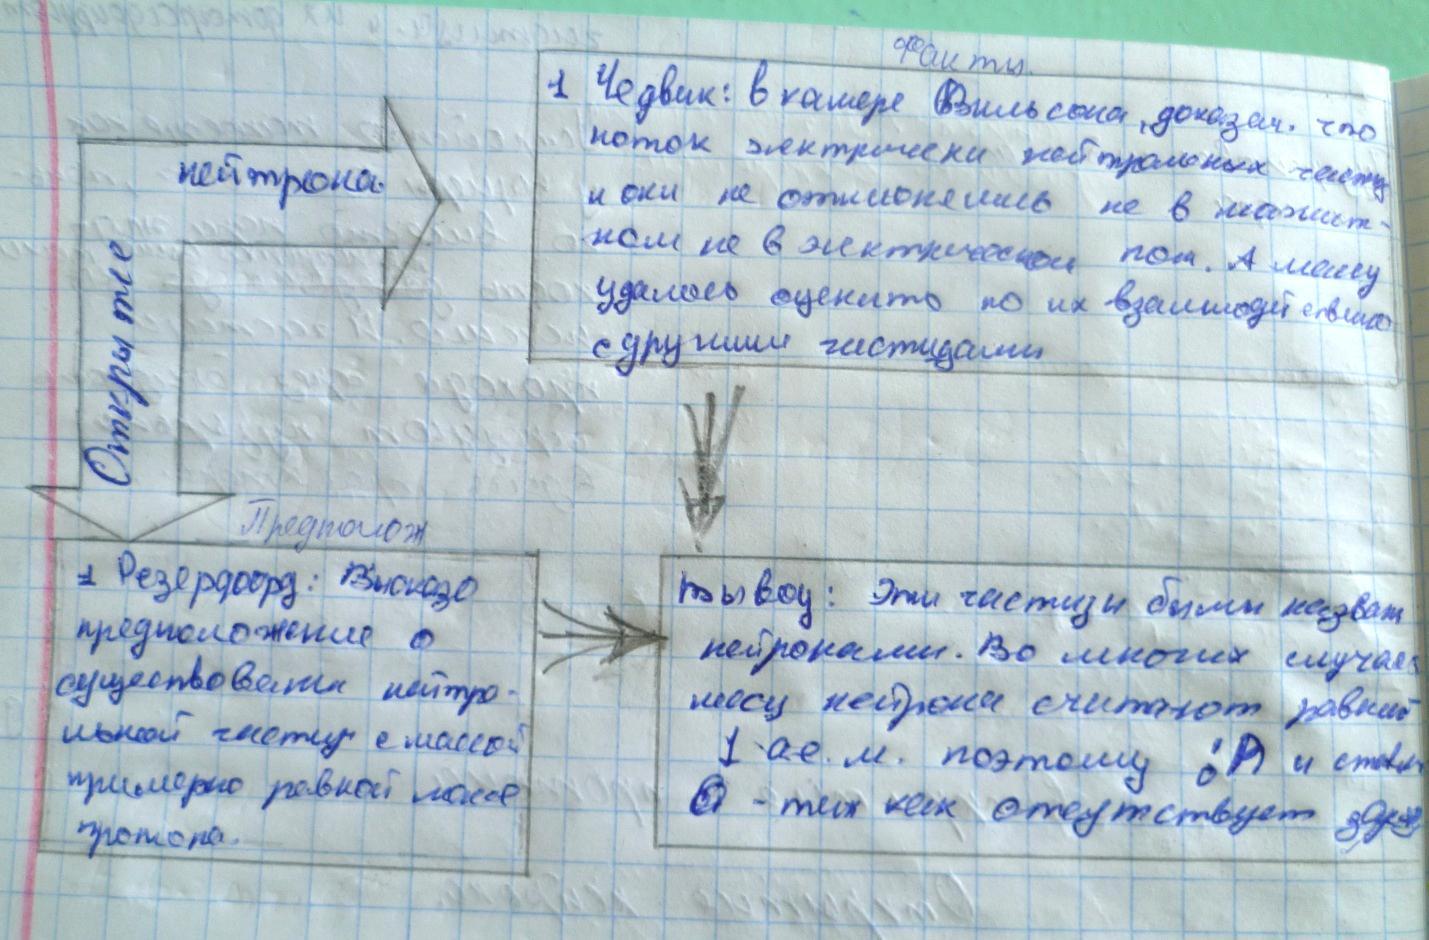 Факты
1 Чедвик: в камере Вильсона, доказал. что
поток электрически нейтральных частиц
и они не отклонялись не в магнит-
ном не в электрическом пол. А массу
удалось оценить по их взаимодействию
с другими частицами
нейтрона.
Открытие
Предполож
1 Резерфорд: Высказо
предположение о
существовании нейтро-
льной частиц с массой
примерно равной массе
протона.
Вывод: Эти частицы были назван
нейронами. Во многих случаях
массу нейтрона считают равной
1 а.е.м. поэтому ¹₀n и ставят
0 - так как отсутствует заряд